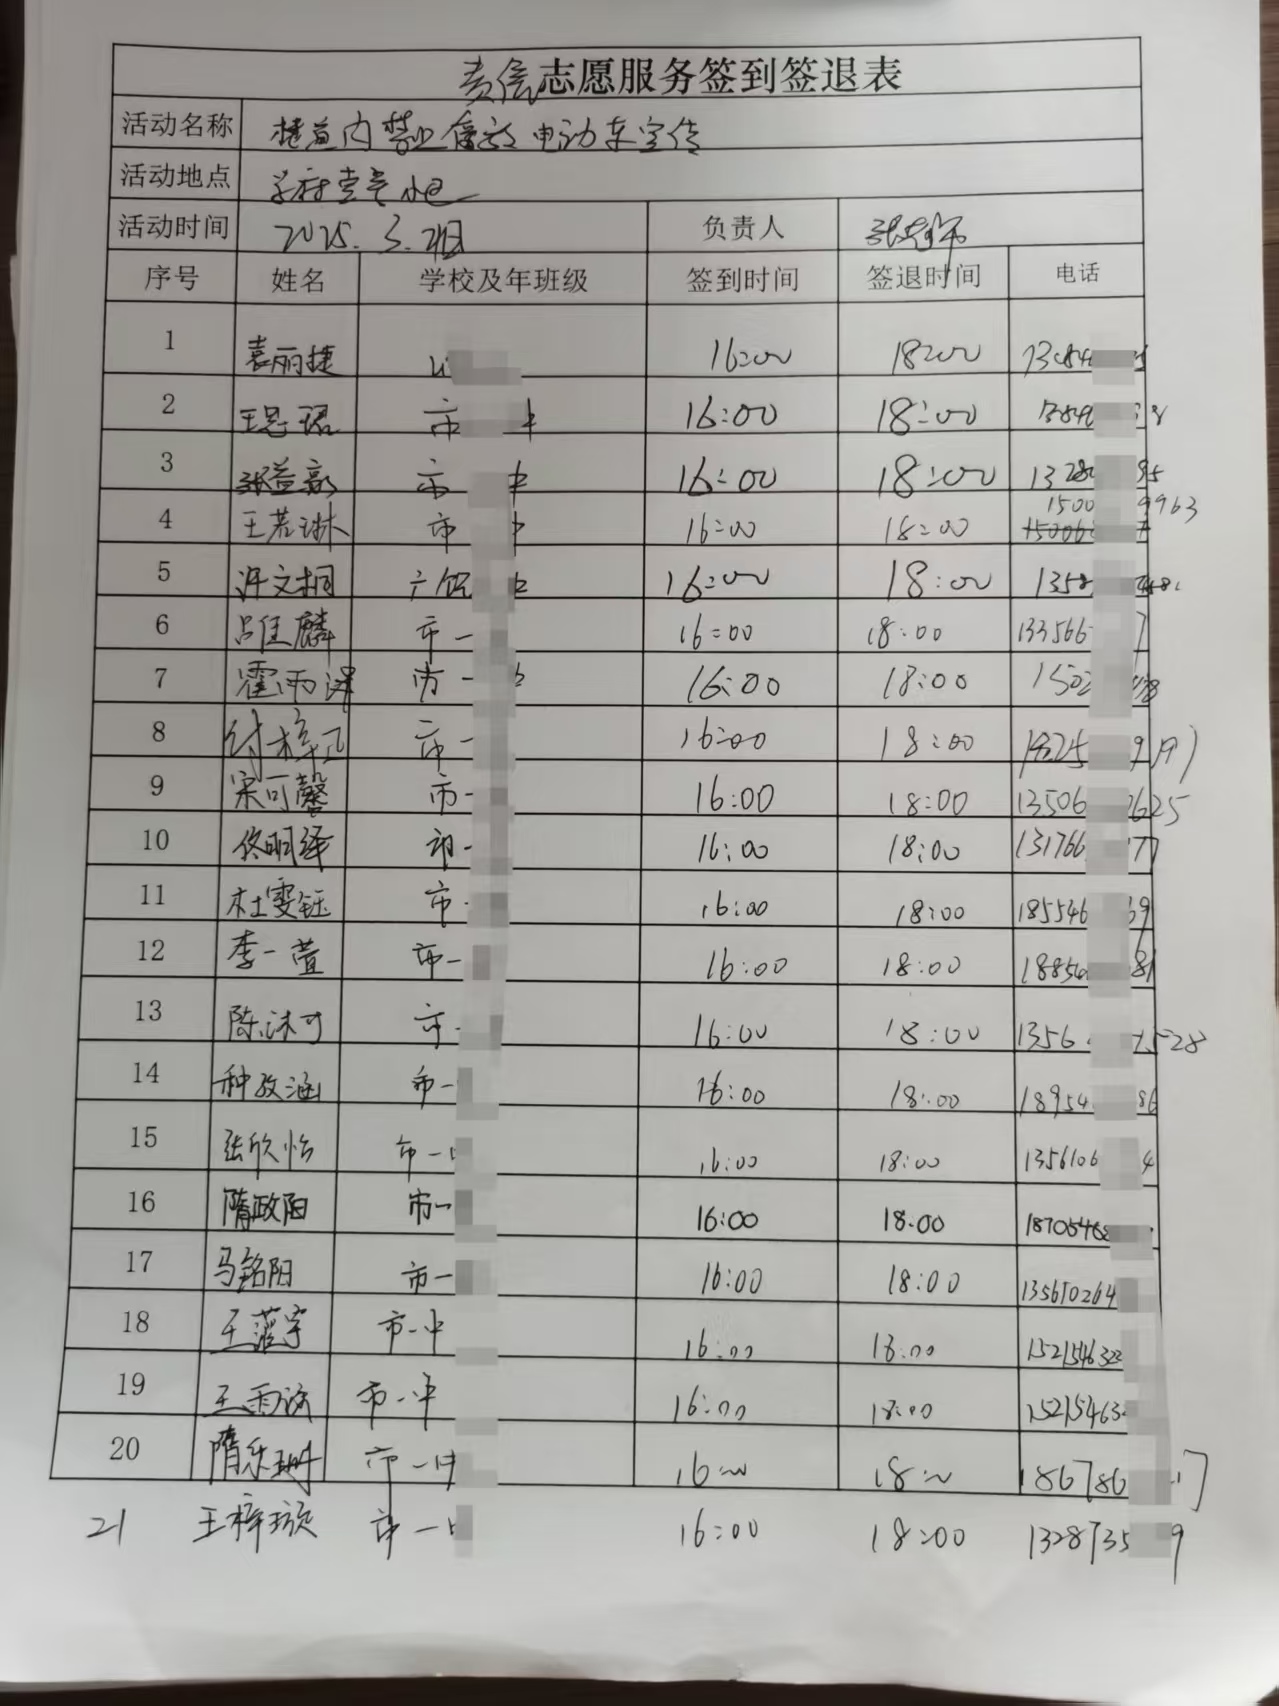 志愿服务签到签退表
活动名称 楼道内禁止停放电动车宣传
活动地点
活动时间 2025.3. 负责人
序号 姓名 学校及年班级 签到时间 签退时间 电话
1 袁丽捷 16:00 18:00
2 王思珺 市 中 16:00 18:00 8
3 张益嘉 市 中 16:00 18:00 1328 95
4 王若琳 市 中 16:00 18:00 1500 9963
5 许文桐 16:00 18:00 135
6 吕佳麟 市一 16:00 18:00 133566 7
7 霍雨泽 市一 16:00 18:00 1502
8 付梓 市一 16:00 18:00
9 宋可馨 市一 16:00 18:00 13506 2625
10 佟明泽 市一 16:00 18:00 131766 77
11 杜雯钰 市 16:00 18:00 185546 39
12 李一萱 市一 16:00 18:00 1885 81
13 陈沐可 市 16:00 18:00 1356 528
14 种孜涵 市一 16:00 18:00 18954 86
15 张欣怡 市一 16:00 18:00 1356106 4
16 隋政阳 市一 16:00 18:00 18705468
17 马铭阳 市一 16:00 18:00 135610264
18 王滢宇 市一中 16:00 18:00 152154632
19 王雨涵 市一中 16:00 18:00 15215463
20 隋乐珊 市一中 16 18 186786 17
21 王梓璇 市一 16:00 18:00 1328735 9